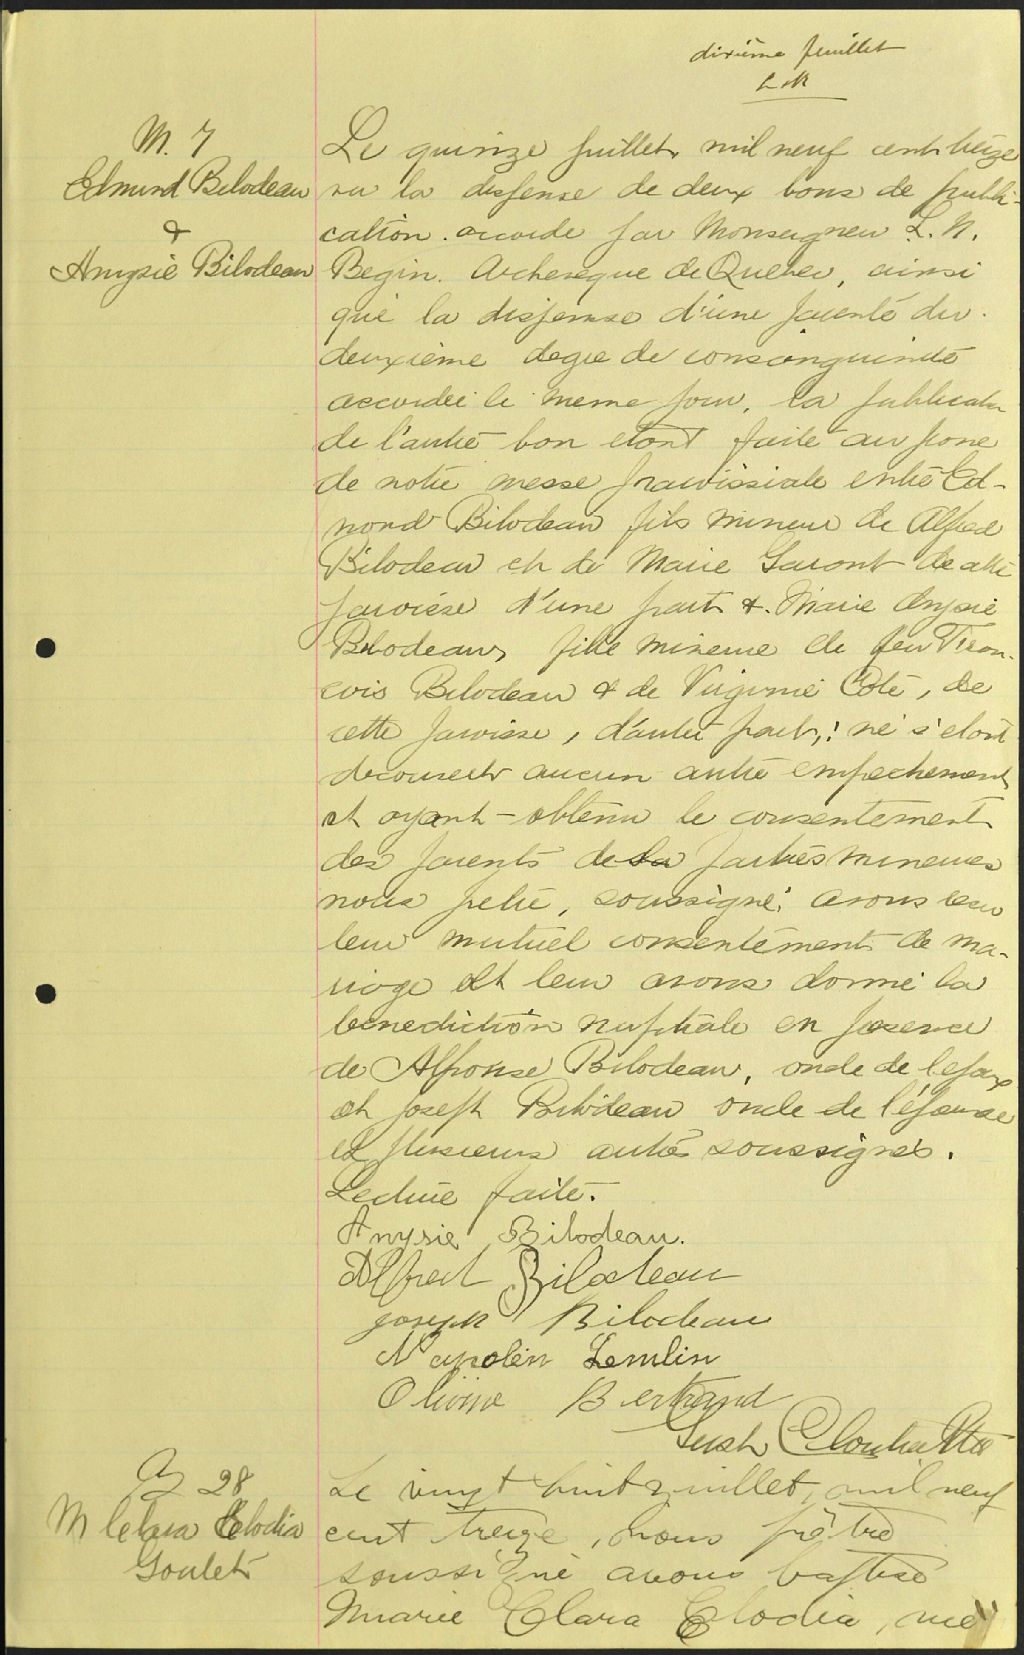 dixième feuillet
M. 7
Edmund Bilodeau
&
Anysie Bilodeau
Le quinze juillet mil neuf cent treize
vu la dispense de deux bans de publi-
cation accordé par Monseigneur L. N.
Begin. Archevêque de Quebec, ainsi
que la dispense d'une parenté du
deuxième degré de consanguinité
accordée le meme jour, la publication
de l'autre ban etant faite au prone
de notre messe paroissiale entre Ed-
mond Bilodeau fils mineur de Alfred
Bilodeau et de Marie Garant de cette
paroisse d'une part & Marie Anysie
Bilodeau, fille mineure de feu Fran-
cois Bilodeau & de Virginie Coté, de
cette paroisse, d'autre part, ne s'etant
decouvert aucun autre empechement
et ayant obtenu le consentement
des parents de la parties mineures
nous pretre, soussigné avons recu
leur mutuel consentement de ma-
riage et leur avons donné la
benediction nuptiale en presence
de Alfonse Bilodeau, oncle de lepoux
et Joseph Bilodeau oncle de l'épouse
et plusieurs autres soussignés.
Lecture faite.
Anysie Bilodeau.
Alfred Bilodeau
Joseph Bilodeau
Napoléon Lemlin
Olivine Bertrand
B 28
M Clara Elodia
Goulet
Le vingt huit juillet, mil neuf
cent treize, nous prêtre
soussigné avons baptisé
Marie Clara Elodia, née